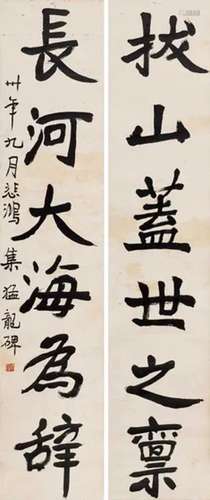 拔山蓋世之禀
長河大海為辭
卅年九月悲鴻集猛龍碑